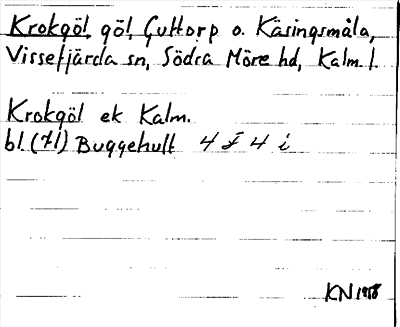 Krokgöl, göl, Guttorp o. Käsingsmåla,
Vissefjärda sn, Södra Möre hd, Kalm l.
Krokgöl ek Kalm.
bl (71) Buggehult 4 F 4 i
KN 1958